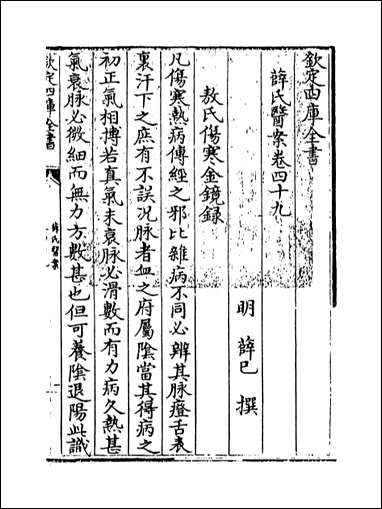 欽定四庫全書
薛氏醫案卷四十九
明 薛己 撰
敖氏傷寒金鏡錄
凡傷寒熱病傳經之邪比雜病不同必辨其脉證舌表
裏汗下之庶有不誤況脉者血之府屬陰當其得病之
初正氣相搏若真氣未衰脉必滑數而有力病久熱甚
氣衰脉必微細而無力方數甚也但可養陰退陽此識
欽定四庫全書
薛氏醫案